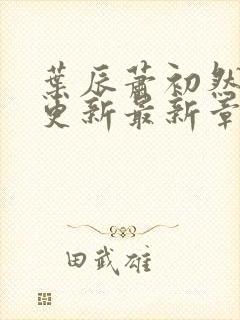 葉辰蕭初然
更新最新章
田武雄